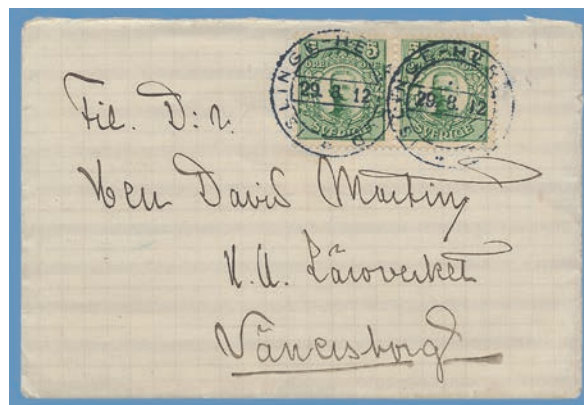 5 5
SLINGE-HE
29. 8. 12
SVERIGE
SLINGE-HE
29. 8. 12
SVERIGE
Fil. D:r.
Herr David Martin
H. A. Läroverket
Vänersborg